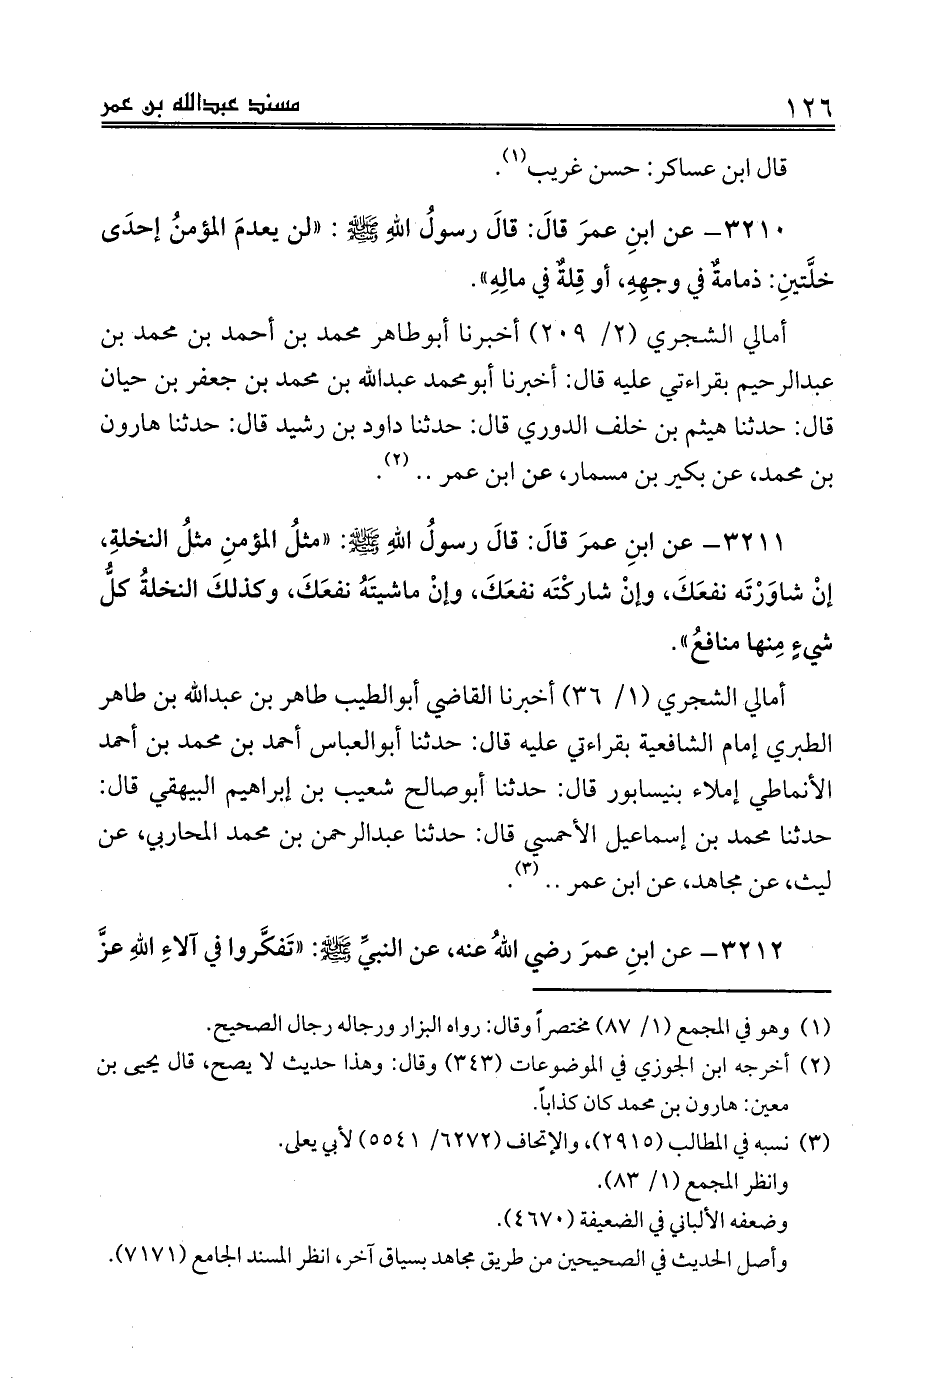 ١٢٦ مسند عبدالله بن عمر
قال ابن عساكر: حسن غريب(١).
٣٢١٠ـ عن ابنِ عمرَ قالَ: قالَ رسولُ اللهِ ﷺ : «لن يعدمَ المؤمنُ إحدَى
خلَّتينِ: ذمامةٌ في وجهِهِ، أو قِلةٌ في مالِهِ».
أمالي الشجري (٢/ ٢٠٩) أخبرنا أبوطاهر محمد بن أحمد بن محمد بن
عبدالرحيم بقراءتي عليه قال: أخبرنا أبومحمد عبدالله بن محمد بن جعفر بن حيان
قال: حدثنا هيثم بن خلف الدوري قال: حدثنا داود بن رشيد قال: حدثنا هارون
بن محمد، عن بكير بن مسمار، عن ابن عمر .. (٢).
٣٢١١ـ عن ابنِ عمرَ قالَ: قالَ رسولُ اللهِ ﷺ: «مثلُ المؤمنِ مثلُ النخلةِ،
إنْ شاوَرْتَه نفعَكَ، وإنْ شاركْتَه نفعَكَ، وإنْ ماشيتَهُ نفعَكَ، وكذلكَ النخلةُ كلُّ
شيءٍ مِنها منافعُ».
أمالي الشجري (١/ ٣٦) أخبرنا القاضي أبوالطيب طاهر بن عبدالله بن طاهر
الطبري إمام الشافعية بقراءتي عليه قال: حدثنا أبوالعباس أحمد بن محمد بن أحمد
الأنماطي إملاء بنيسابور قال: حدثنا أبوصالح شعيب بن إبراهيم البيهقي قال:
حدثنا محمد بن إسماعيل الأحمسي قال: حدثنا عبدالرحمن بن محمد المحاربي، عن
ليث، عن مجاهد، عن ابن عمر .. (٣).
٣٢١٢ـ عن ابنِ عمرَ رضي اللهُ عنه، عن النبيِّ ﷺ: «تَفكَّروا في آلاءِ اللهِ عزَّ
(١) وهو في المجمع (١/ ٨٧) مختصراً وقال: رواه البزار ورجاله رجال الصحيح.
(٢) أخرجه ابن الجوزي في الموضوعات (٣٤٣) وقال: وهذا حديث لا يصح، قال يحيى بن
معين: هارون بن محمد كان كذاباً.
(٣) نسبه في المطالب (٢٩١٥)، والإتحاف (٦٢٧٢/ ٥٥٤١) لأبي يعلى.
وانظر المجمع (١/ ٨٣).
وضعفه الألباني في الضعيفة (٤٦٧٠).
وأصل الحديث في الصحيحين من طريق مجاهد بسياق آخر، انظر المسند الجامع (٧١٧١).